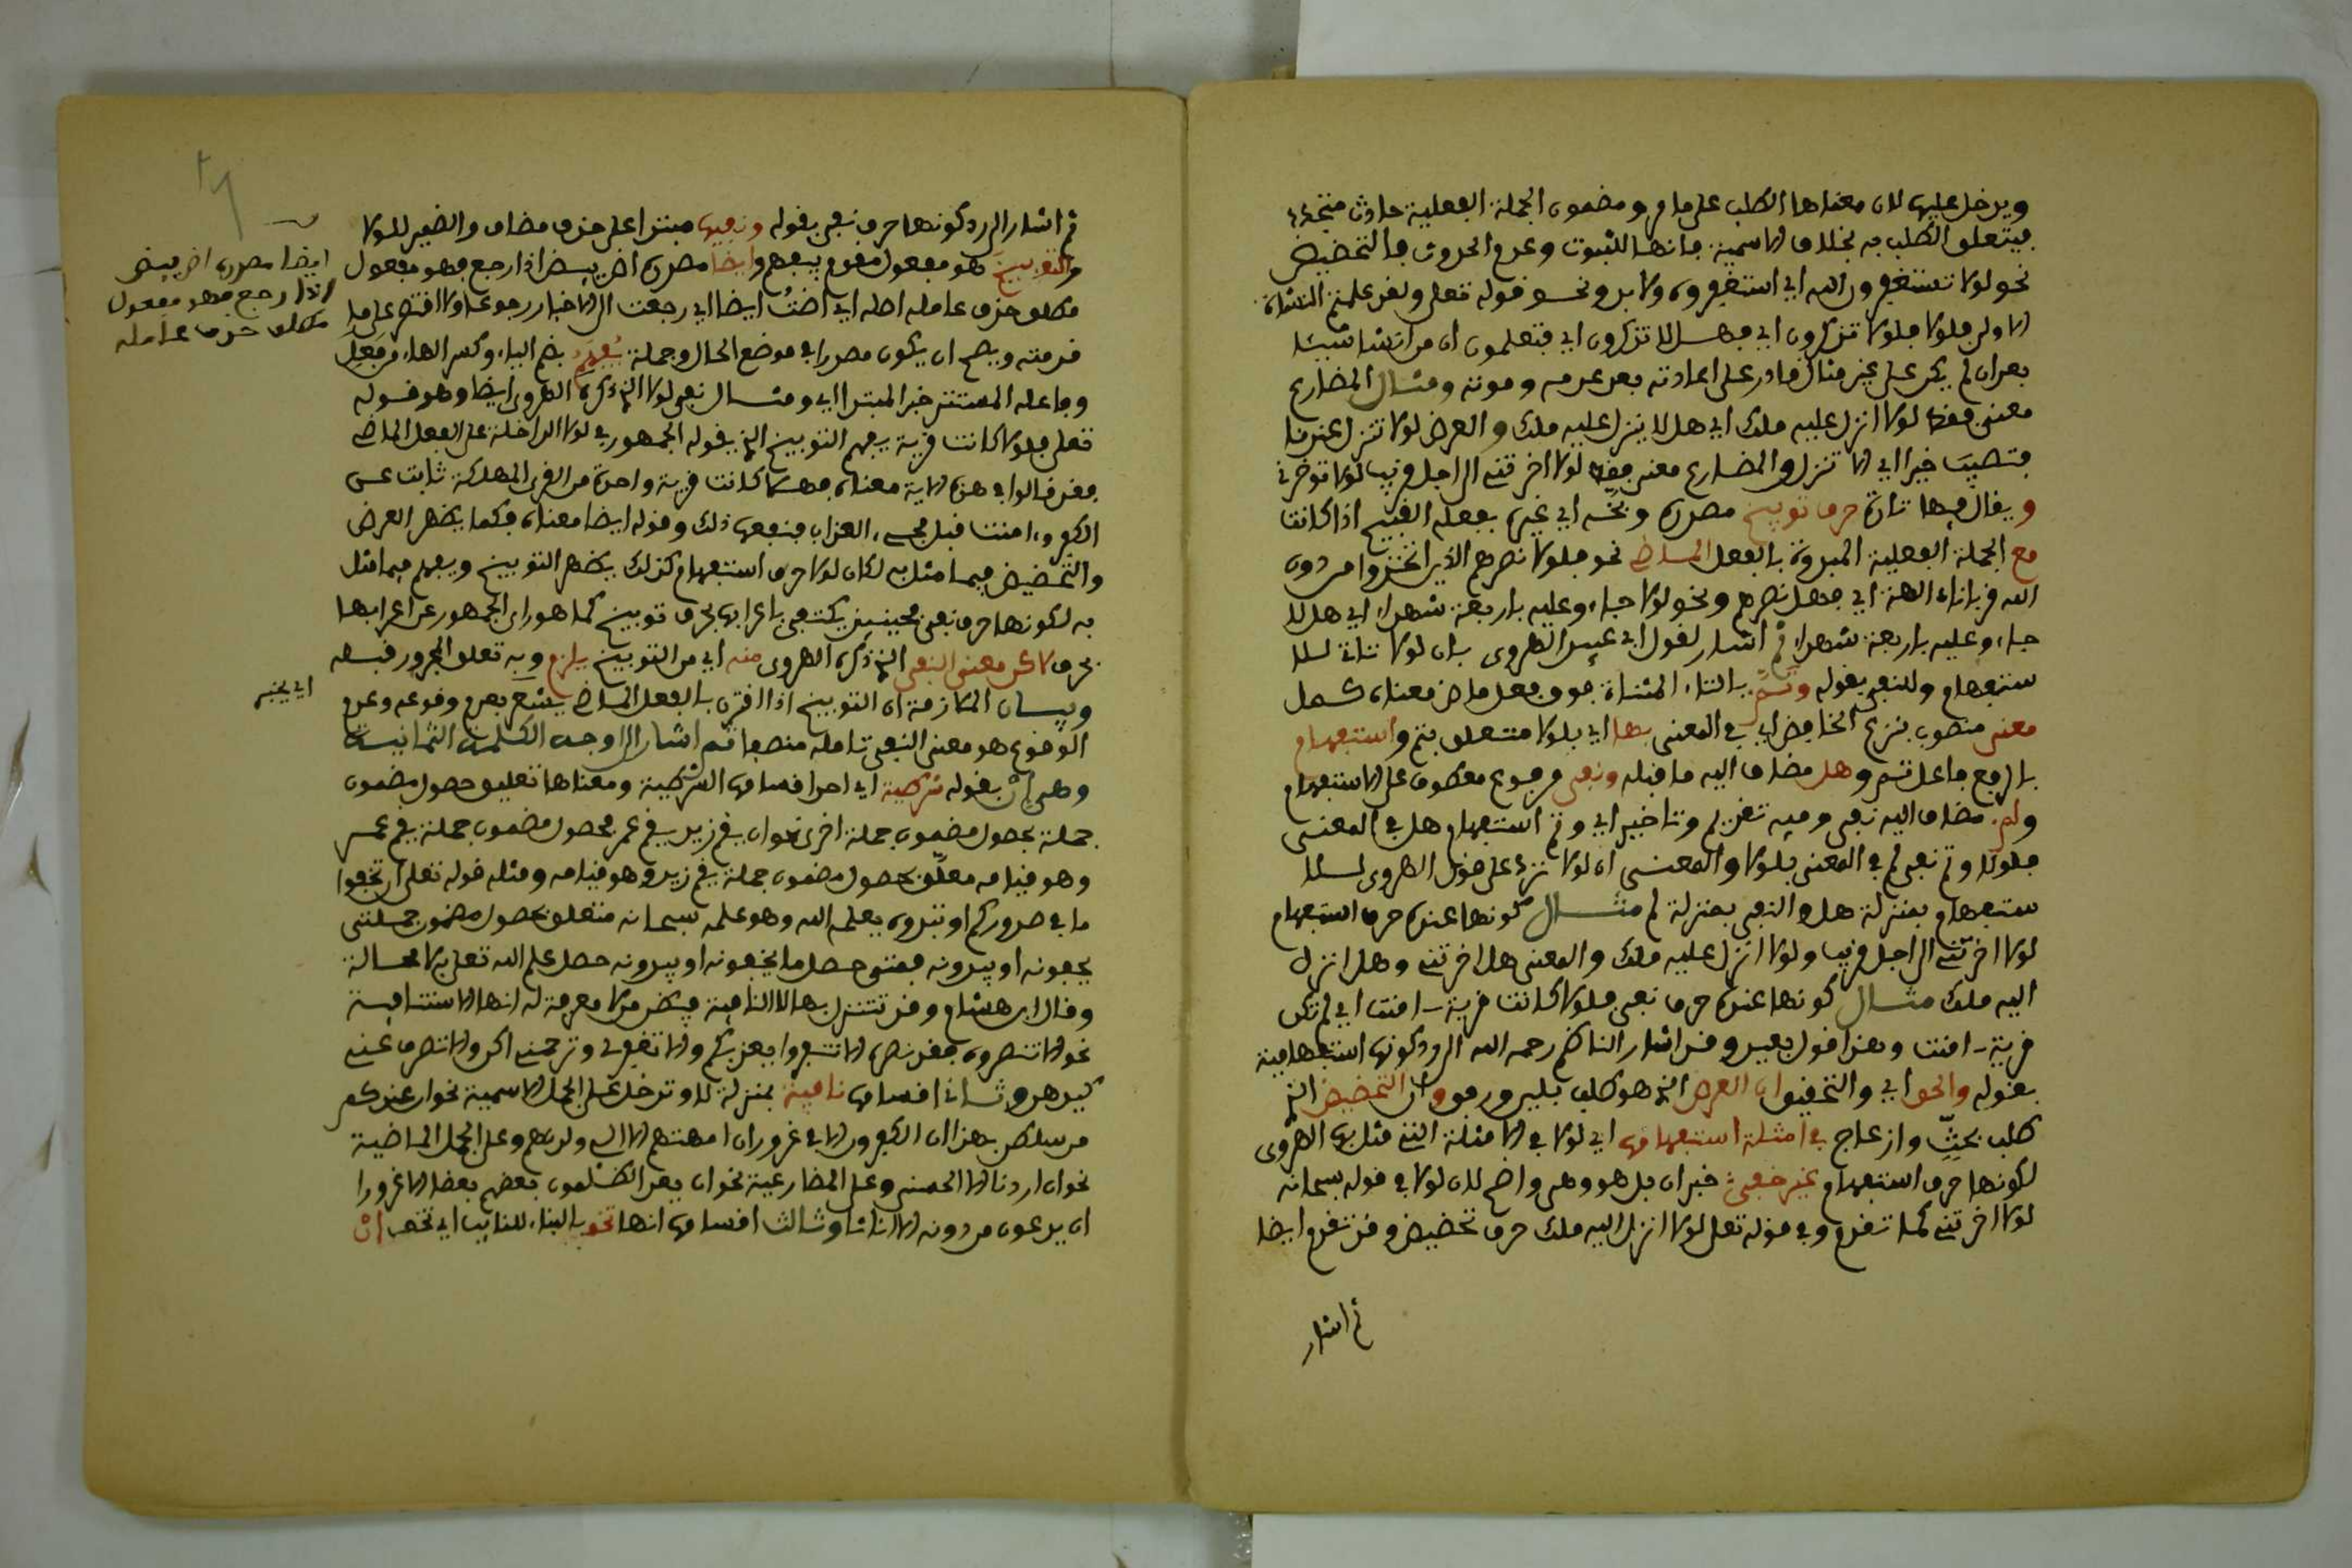 ويدخل عليها لان معناها الطلب على ما مر ومضمون الجملة الفعلية حادث متجدد
فيتعلق الطلب به بخلاف الاسمية فانها للثبوت وعدم الحدوث فالتحضيض
نحو لولا تستغفرون الله اي استغفروه ولا بد ونحو قوله تعلى ولقد علمتم النشأة
الاولى فلولا فلولا تذكرون اي فهلا تذكرون اي فتعلمون ان من انشا شيئا
بعد ان لم يكن على غير مثال قادر على اعادته بعد عدمه وموته ومثال المضارع
معنى فقط لولا انزل عليه ملك اي هلا ينزل عليه ملك والعرض لولا تنزل عندنا
فتصيب خيرا اي الا تنزل والمضارع معنى فقط لولا اخرتني الى اجل قريب لولا توخرني
ويقال فيها تارة حرف توبيخ مصدر وبخه اي عيره بفعله القبيح اذا كانت
مع الجملة الفعلية المبدوة بالفعل الماضي نحو فلولا نصرهم الذين اتخذوا من دون
الله قربانا الهة اي فهلا نصرهم ونحو لولا جاءو عليه باربعة شهداء اي هلا
جاءو عليه باربعة شهداء ثم اشار لقول ابي عبيد الهروي بان لولا تاتي للا
ستفهام وللنفي بقوله وتم بالتاء المثناة فوق فعل ماض معناه كمل
معنى منصوب بنزع الخافض اي في المعنى بها اي بلولا متعلق بتم واستفهام
بالرفع فاعل تم وهل مضاف اليه ما قبله ونفي مرفوع معطوف على الاستفهام
ولم مضاف اليه نفي وفيه تقديم وتاخير اي وتم استفهام هل في المعنى
فلولا وتم نفي لم في المعنى بلولا والمعنى ان لولا تزد على قول الهروي للا
ستفهام بمنزلة هل والنفي بمنزلة لم مثال كونها عنده حرف استفهام
لولا اخرتني الى اجل قريب ولولا انزل عليه ملك والمعنى هل اخرتني وهل انزل
اليه ملك مثال كونها عنده حرف نفي فلولا كانت قرية امنت اي لم تكن
قرية امنت وهذا قول بعيد وقد اشار الناظم رحمه الله الى رد كونها استفهامية
بقوله والحق اي والتحقيق ان العرض الذي هو طلب بلين ورفق وان التحضيض الذي
طلب بحث وازعاج في امثلة استفهامها اي لولا في الامثلة التي مثل بها الهروي
لكونها حرف استفهام غير خفي خبر ان بل هو وهي واضح لان لولا في قوله سبحانه
لولا اخرتني كما تقدم وفي قوله تعلى لولا انزل اليه ملك حرف تحضيض وقد تقدم ايضا
ثم اشار
ثم اشار الى رد كونها حرف نفي بقوله ونفيها مبتدا على حذف مضاف والضمير للولا
والتوبيخ هو مفعول مقدم بيفهم وايضا مصدر اض يئيض اذا رجع فهو مفعول
مطلق حذف عامله اصله اي اضت ايضا اي رجعت الى الاخبار رجوعا ولا اقتصر على ما
قدمته ويصح ان يكون مصدرا في موضع الحال وجملة يفهم بضم الياء وكسر الهاء فعل
وفاعله المستتر خبر المبتدا اي ومثال نفي لولا الذي ذكره الهروي ايضا وهو قوله
تعلى فلولا كانت قرية يفهم التوبيخ الذي يقوله الجمهور في لولا الداخلة على الفعل الماضي
فقد قالوا في هذه الاية معناه فهلا كانت قرية واحدة من القرى المهلكة ثابت عن
الكفر وءامنت قبل مجيء العذاب فنفعها ذلك وقوله ايضا معناه فكما يظهر العرض
والتحضيض فيما مثل به لكان لولا حرف استفهام كذلك يظهر التوبيخ ويفهم فيما مثل
به لكونها حرف نفي فحينئذ يكتفى باعرابها بحرف توبيخ كما هو راي الجمهور عن اعرابها
بحرف لاكن معنى النفي الذي ذكره الهروي منه اي من التوبيخ يلزم وبه تعلق المجرور قبله
وبيان الملازمة ان التوبيخ اذا اقترن بالفعل الماضي يشعر بعدم وقوعه وعدم
الوقوع هو معنى النفي تامله منصفا ثم اشار الى اوجه الكلمة الثانية
وهي ان بقوله شرطية اي احد اقسامها الشرطية ومعناها تعليق حصول مضمون
جملة بحصول مضمون جملة اخرى نحو ان يقم زيد يقم عمر فحصول مضمون جملة يقم عمر
وهو قيامه معلق بحصول مضمون جملة يقم زيد وهو قيامه ومثله قوله تعلى ان تخفوا
ما في صدوركم او تبدوه يعلمه الله وهو علمه سبحانه متعلق بحصول مضمون جملتي
يخفونه او يبدونه فمتى حصل ما يخفونه او يبدونه حصل علم الله تعلى به لا محالة
وقال ابن هشام وقد تتنزل بها لا النافية فيظن من لا معرفة له انها الاستثنائية
نحو الا تنصروه فقد نصره الا تنفروا يعذبكم والا تغفر لي وترحمني اكن والا تصرف عني
كيدهن وثاني اقسامها نافية بمنزلة لا وتدخل على الجمل الاسمية نحو ان عندكم
من سلطن بهذا ان الكفرون الا في غرور ان امهتهم الا الئي ولدنهم وعلى الجمل الماضية
نحو ان اردنا الا الحسنى وعلى المضارعية نحو ان يعد الظلمون بعضهم بعضا الا غرورا
ان يدعون من دونه الا اناثا وثالث اقسامها انها تخف بالبناء للنايب اي تخف ان
ايضا مصدر اض يئيض
اذا رجع فهو مفعول
مطلق حذف عامله